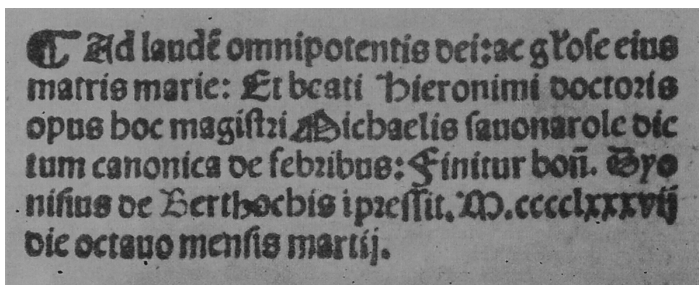 ¶ Ad laudē omnipotentis dei: ac gl'ose eius
matris marie: Et beati Hieronimi doctoris
opus hoc magistri Michaelis sauonarole dic
tum canonica de febribus: Finitur bon̄. Dyo
nisius de Berthochis ipressit. M.cccclxxxvij
die octauo mensis martij.